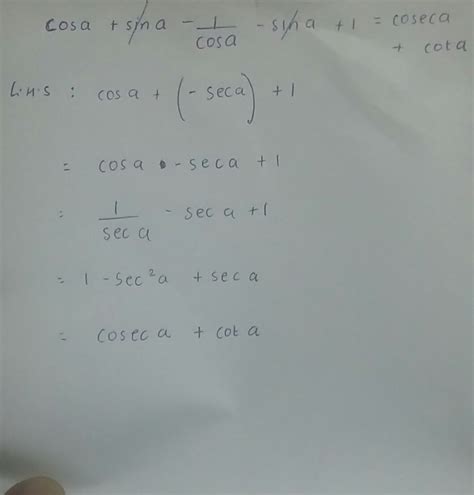 cosa + sina - 1/cosa - sina + 1 = coseca
+ cota
L.H.S : cos a + (- sec a) + 1
= cosa - sec a + 1
= 1/sec a - sec a + 1
= 1 - sec²a + sec a
= cosec a + cot a